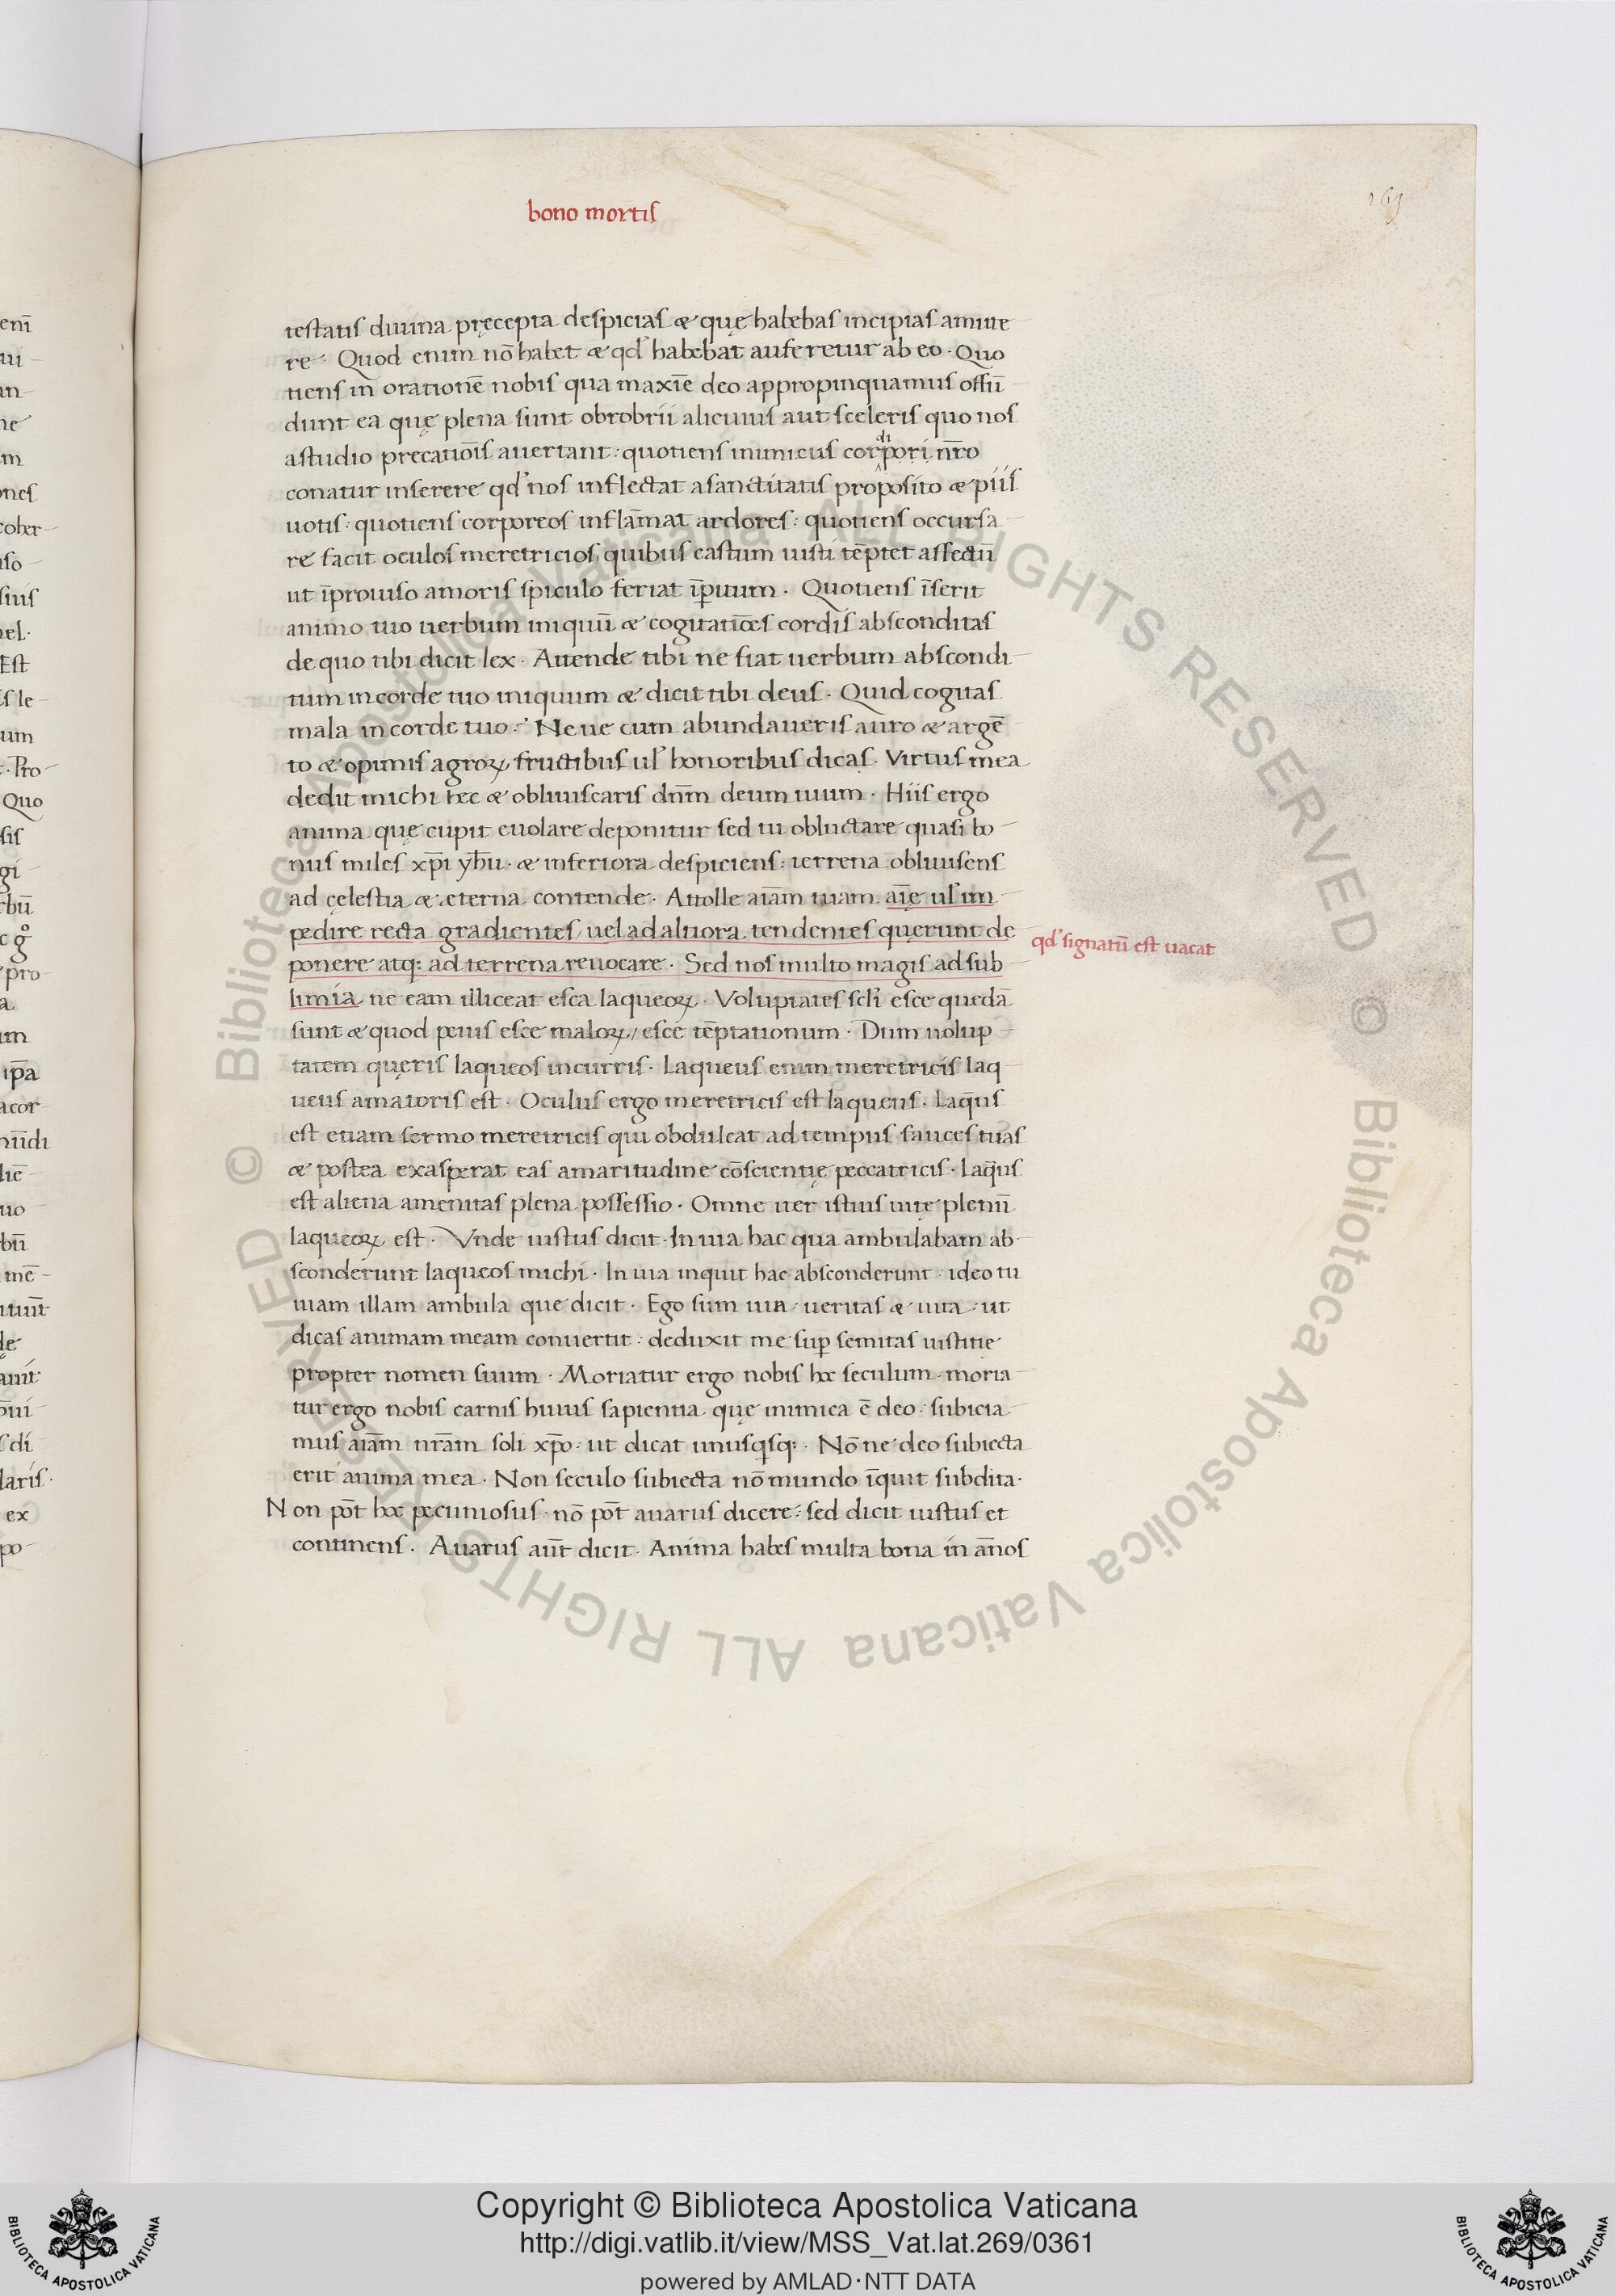 bono mortis
169
testatis diuina pręcepta despicias & quę habebas incipias amitte
re · Quod enim nō habet & qd' habebat auferetur ab eo · Quo
tiens in orationē nobis qua maxīe deo appropinquamus offū
dunt ea quę plena sunt obrobrii alicuius aut sceleris quo nos
a studio precatiōīs auertant : quotiens inimicus cordi corpori nr̄o
conatur inserere qd' nos inflectat a sanctitatis proposito & piis
uotis : quotiens corporeos inflāmat ardores : quotiens occursa
re facit oculos meretricios quibus castum iusti tēptet affectū
ut īprouiso amoris spiculo feriat īpitum · Quotiens īserit
animo tuo uerbum iniquū & cogitatiōes cordis absconditas
de quo tibi dicit lex · Attende tibi ne fiat uerbum abscondi
tum in corde tuo iniquum & dicit tibi deus · Quid cogitas
mala in corde tuo · Ne ue cum abundaueris auro & argē
to & opimis agroꝝ fructibus ul' honoribus dicas · Virtus mea
dedit michi hec & obliuiscaris dn̄m deum tuum · Hiis ergo
anima quę cupit euolare deponitur sed tu obluctare quasi bo
nus miles xp̄i yh̄u · & inferiora despiciens : terrena obliuisens
ad cęlestia & ęterna contende · Attolle aīam tuam aīę ul' im
pedire recta gradientes / uel ad altiora tendentes quęrunt de
ponere atq: ad terrena reuocare · Sed nos multo magis ad sub
limia ne eam illiceat esca laqueoꝝ · Voluptates scl'i esce quedā
sunt & quod peius esce maloꝝ / esce tēptationum · Dum uolup
tatem quęris laqueos incurris · Laqueus enim meretricis laq
ueus amatoris est · Oculus ergo meretricis est laqueus · Laq̄us
est etiam sermo meretricis qui obdulcat ad tempus fauces tuas
& postea exasperat eas amaritudine cōscientię peccatricis · laq̄us
est aliena amenitas plena possessio · Omne iter istius uitę plenū
laqueoꝝ est · Vnde iustus dicit · In uia hac qua ambulabam ab
sconderunt laqueos michi · In uia inquit hac absconderunt · ideo tu
uiam illam ambula que dicit · Ego sum uia · ueritas & uita · ut
dicas animam meam conuertit : deduxit me sup semitas iustitię
propter nomen suum · Moriatur ergo nobis hoc seculum · moria
tur ergo nobis carnis huius sapientia quę inimica ē deo · subicia
mus aīam nr̄am soli xp̄o · ut dicat unusqsq: · Nō ne deo subiecta
erit anima mea · Non seculo subiecta nō mundo īquit subdita ·
Non pōt hoc pecuniosus · nō pōt auarus dicere : sed dicit iustus et
continens · Auarus aūt dicit · Anima habes multa bona in an̄os
qd' signatū est uacat
Copyright © Biblioteca Apostolica Vaticana
http://digi.vatlib.it/view/MSS_Vat.lat.269/0361
powered by AMLAD·NTT DATA
BIBLIOTECA APOSTOLICA VATICANA
BIBLIOTECA APOSTOLICA VATICANA
© Biblioteca Apostolica Vaticana ALL RIGHTS RESERVED © Biblioteca Apostolica Vaticana ALL RIGHTS RESERVED